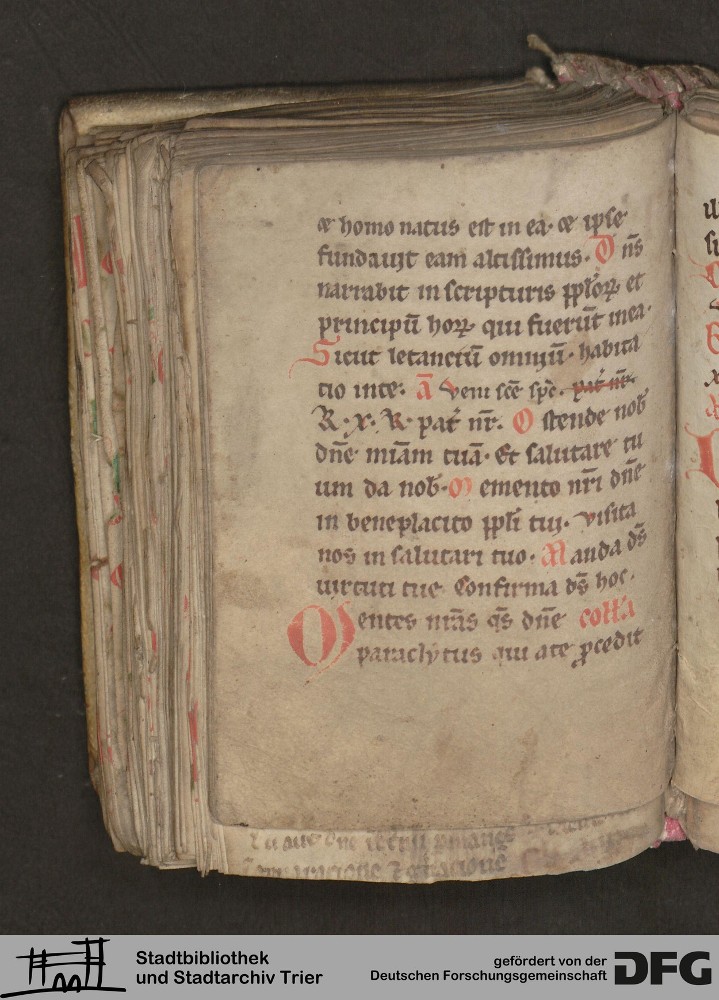 et homo natus est in ea. et ipse
fundauit eam altissimus. Dn̄s
narrabit in scripturis ppl'oꝝ et
principū hoꝝ qui fuerūt in ea.
Sicut letanciū omniū. habita
tio in te. ā Veni sc̄e sp̄c. pat' nr̄.
R. x. R. pat' nr̄. Ostende nob'
dn̄e miām tuā. Et salutare tu
um da nob'. Memento nr̄i dn̄e
in beneplacito ppl'i tui. visita
nos in salutari tuo. Manda ds̄
uirtuti tue Confirma ds̄ hoc.
Mentes nr̄as qs̄ dn̄e coll'a
paraclytus qui a te ꝓcedit
Stadtbibliothek
und Stadtarchiv Trier
gefördert von der
Deutschen Forschungsgemeinschaft
DFG